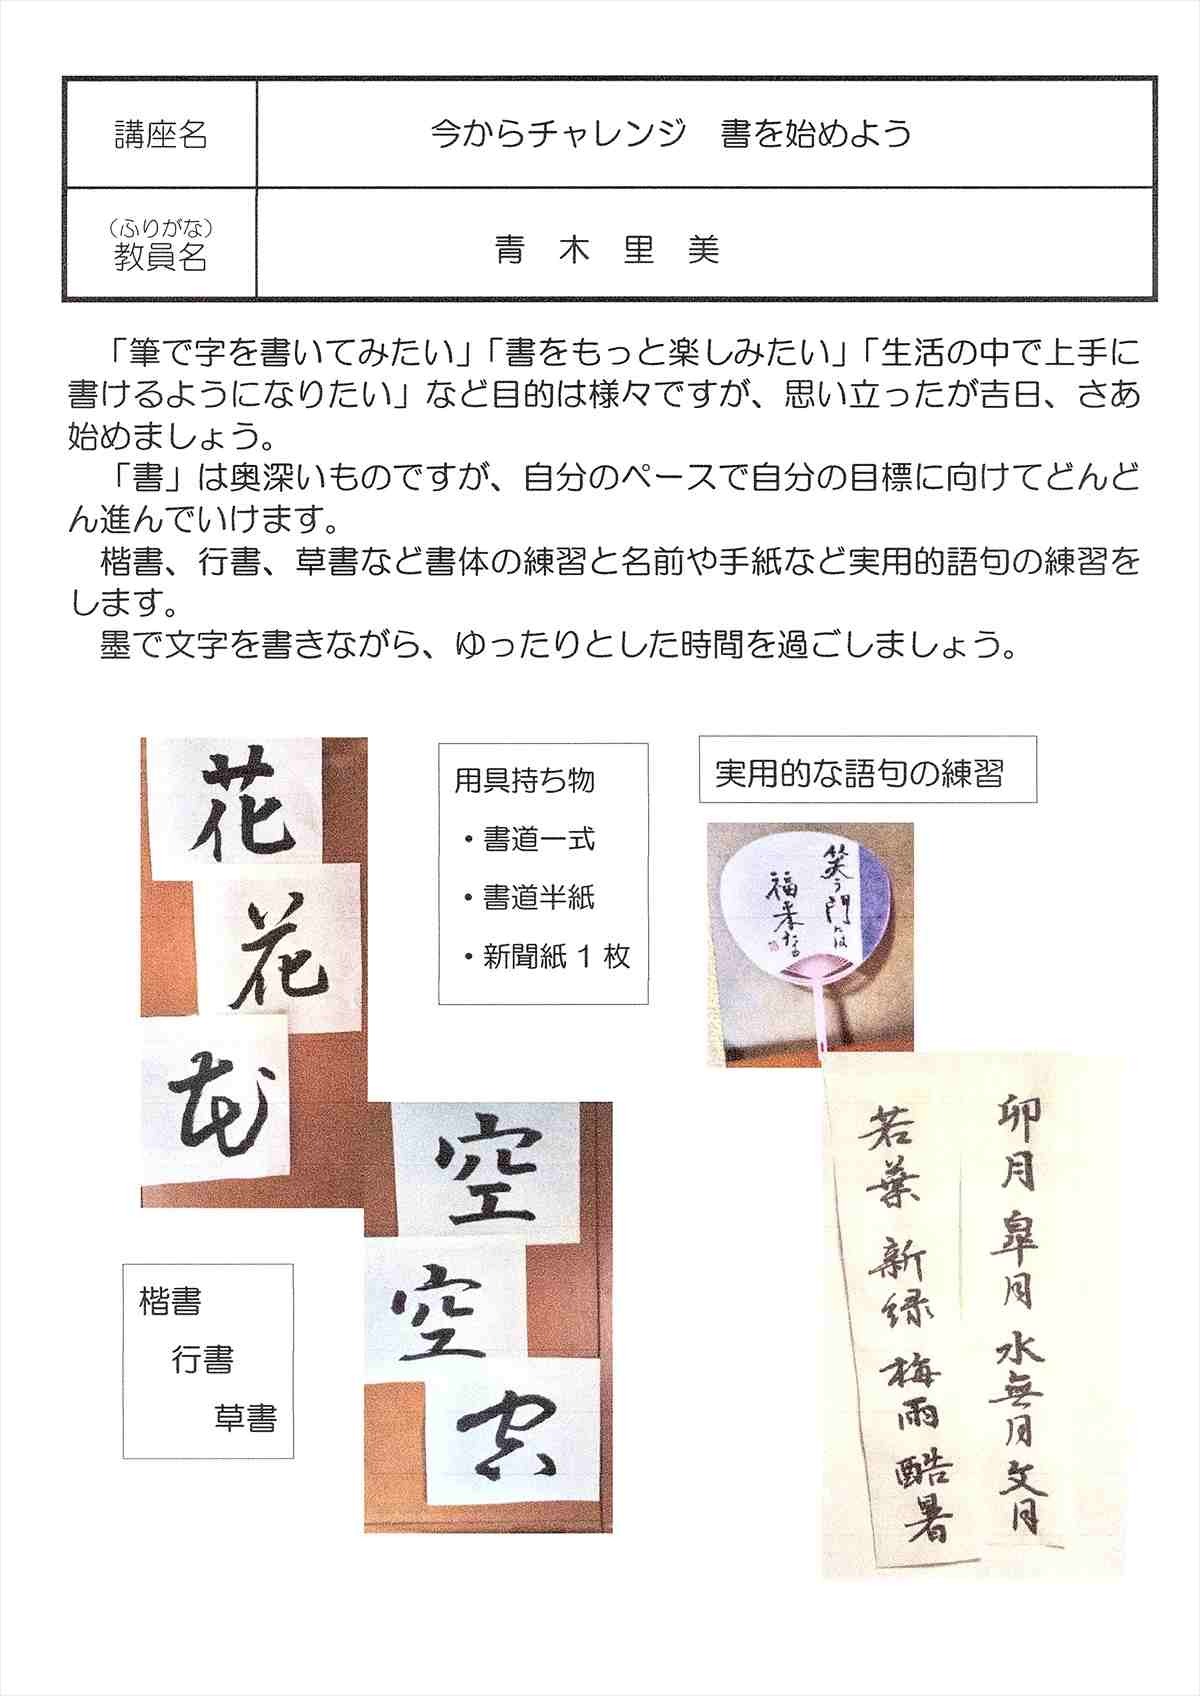 講座名
今からチャレンジ　書を始めよう
（ふりがな）
教員名
青　木　里　美
「筆で字を書いてみたい」「書をもっと楽しみたい」「生活の中で上手に
書けるようになりたい」など目的は様々ですが、思い立ったが吉日、さあ
始めましょう。
「書」は奥深いものですが、自分のペースで自分の目標に向けてどんど
ん進んでいけます。
楷書、行書、草書など書体の練習と名前や手紙など実用的語句の練習を
します。
墨で文字を書きながら、ゆったりとした時間を過ごしましょう。
花
花
花
用具持ち物
・書道一式
・書道半紙
・新聞紙１枚
実用的な語句の練習
笑う門には
福来たる
空
空
空
楷書
行書
草書
卯月 皐月 水無月 文月
若葉 新緑 梅雨 酷暑